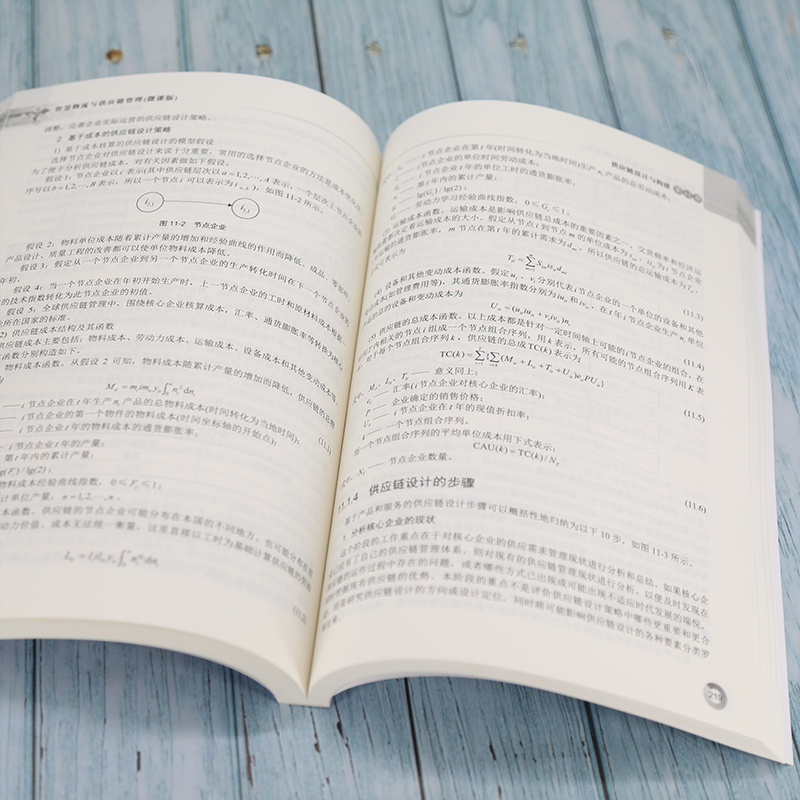 智慧物流与供应链管理(微课版)
调整、完善企业实际运营的供应链设计策略。
2. 基于成本的供应链设计策略
1) 基于成本核算的供应链设计的模型假设
选择节点企业对供应链设计来说十分重要，常用的选择节点企业的方法是成本优化
为了便于分析供应链成本，对有关因素做如下假设。
假设 1：节点企业以 i 表示(其中供应链层次以 a = 1,2,…,A 表示，一个层次上节点企业的
序号以 b = 1,2,…,B 表示，所以一个节点 i 可以表示为
如图 11-2 所示。
图 11-2 节点企业
假设 2：物料单位成本随着累计产量的增加和经验曲线的作用而降低，成品、零部件
产品设计、质量工程的改善都可以使单位物料成本降低。
假设 3：假定从一个节点企业到另一个节点企业的生产转化时间在下一个节点企业的
年初。
假设 4：当一个节点企业在年初开始生产时，上一节点企业的工时和原材料成本根据
的技术指数转化为此节点企业的初值。
假设 5：全球供应链管理中，围绕核心企业核算成本，汇率、通货膨胀率等转换为核心
企业所在国家的标准。
2) 供应链成本结构及其函数
供应链成本主要包括：物料成本、劳动力成本、运输成本、设备成本和其他变动成本等
成本函数分别构造如下。
物料成本函数。从假设 2 可知，物料成本随累计产量的增加而降低，供应链的总物
为
(11.1)
—— i 节点企业在 t 年生产 nᵢ 产品的总物料成本(时间转化为当地时间)；
—— i 节点企业的第一个物件的物料成本(时间坐标轴的开始点)；
—— i 节点企业 t 年的物料成本的通货膨胀率；
i 节点企业 t 年的产量；
第 t 年内的累计产量；
lg(Fᵢ) / lg(2)；
物料成本经验曲线指数，0 ≤ Fᵢ ≤ 1；
累计单位产量，n = 1,2,…,
成本函数。供应链的节点企业可能分布在本国的不同地方，也可能分布在
动力价值、成本无法统一衡量，这里直接以工时为基础计算供应链的
(11.2)
供应链设计与构建 第11章
—— i 节点企业在第 t 年(时间转化为当地时间)生产 nᵢ 产品的总劳动成本；
—— i 节点企业的单位时间劳动成本；
—— i 节点企业 t 年的单位工时的通货膨胀率；
—— 第 t 年内的累计产量；
—— lg(Gᵢ) / lg(2)；
—— 劳动力学习经验曲线指数，0 ≤ Gᵢ ≤ 1。
(3) 运输成本函数。运输成本是影响供应链总成本的重要因素之一，交货频率和经济运
(11.3)
(4) 设备和其他变动成本函数。假定 uᵢ、vᵢ 分别代表 i 节点企业的一个单位的设备和其他
变动成本(如管理费用等)，其通货膨胀率指数分别为
产品的总的设备和变动成本为
(11.4)
(5) 供应链的总成本函数。以上成本都是针对一定时间轴上可能的 i 节点企业的组合，在
时间 T 内相关的节点 i 组成一个节点组合序列，用 k 表示，所有可能的节点组合序列用 K 表
对于每个节点组合序列 k，供应链的总成本 TC(k) 表示为
(11.5)
意义同上；
—— 汇率(i 节点企业对核心企业的汇率)；
P —— 企业确定的销售价格；
—— i 节点企业在 t 年的现值折扣率；
k —— 一个节点组合序列。
一个节点组合序列的平均单位成本用下式表示：
CAU(k) = TC(k) / N
(11.6)
—— 节点企业数量。
11.1.4 供应链设计的步骤
基于产品和服务的供应链设计步骤可以概括性地归纳为以下 10 步，如图 11-3 所示。
1. 分析核心企业的现状
这个阶段的工作重点在于对核心企业的供应需求管理现状进行分析和总结。如果核心企
业已经有了自己的供应链管理体系，则对现有的供应链管理现状进行分析，以便及时发现在
供应链的运作过程中存在的问题，或者哪些方式已出现或可能出现不适应时代发展的端倪，
同时挖掘现有供应链的优势。本阶段的重点不是评价供应链设计策略中哪些更重要和更合
适，而是研究供应链设计的方向或设计定位，同时将可能影响供应链设计的各种要素分类罗
列出来。
219